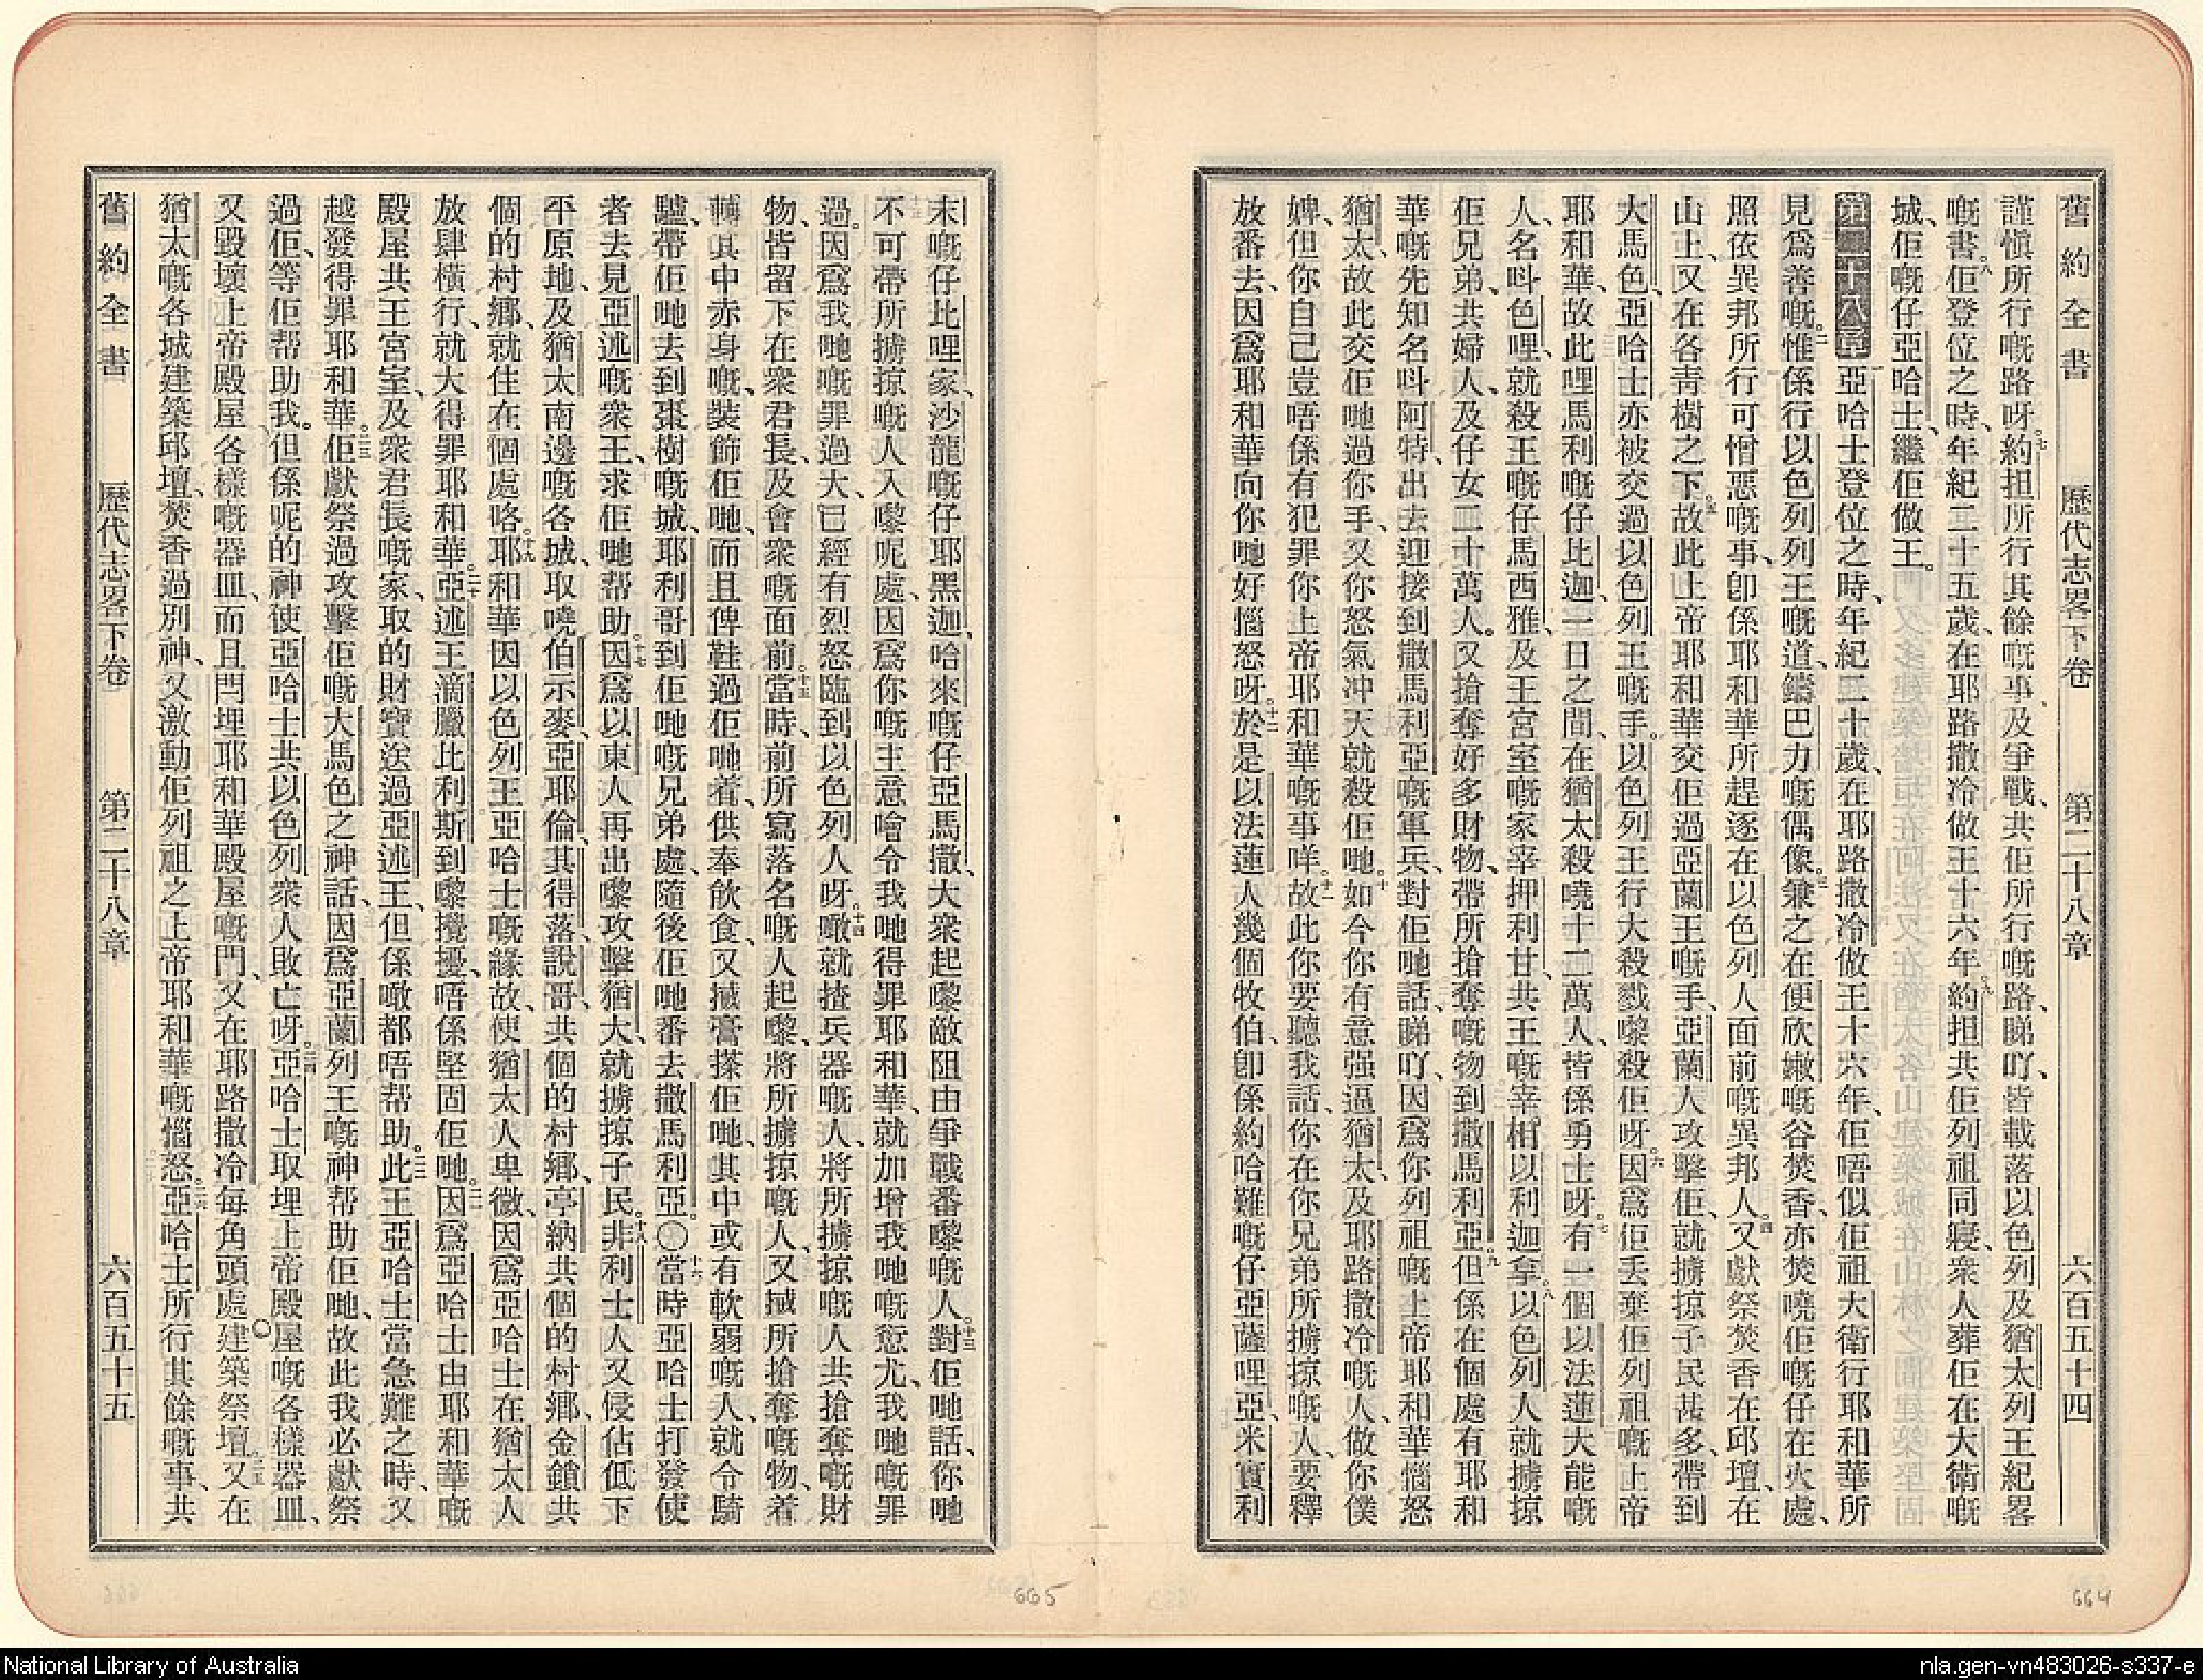 舊約全書　歷代志畧下卷　第二十八章　六百五十四
謹愼所行嘅路呀。七約担所行其餘嘅事、及爭戰、共佢所行嘅路、睇吖、皆載落以色列及猶太列王紀畧
嘅書。八佢登位之時、年紀二十五歲、在耶路撒冷做王十六年。九約担共佢列祖同寢、衆人葬佢在大衛嘅
城、佢嘅仔亞哈士、繼佢做王。
第二十八章　亞哈士登位之時、年紀二十歲、在耶路撒冷做王十六年、佢唔似佢祖大衛行耶和華所
見爲善嘅。二惟係行以色列列王嘅道、鑄巴力嘅偶像。三兼之在便欣嫩嘅谷焚香、亦焚嘵佢嘅仔在火處、
照依異邦所行可憎惡嘅事、卽係耶和華所趕逐在以色列人面前嘅異邦人。四又獻祭焚香在邱壇、在
山上、又在各靑樹之下。五故此上帝耶和華交佢過亞蘭王嘅手、亞蘭人攻擊佢、就擄掠子民甚多、帶到
大馬色、亞哈士亦被交過以色列王嘅手。以色列王行大殺戮嚟殺佢呀。六因爲佢丢棄佢列祖嘅上帝
耶和華、故此哩馬利嘅仔比迦、一日之間、在猶太殺嘵十二萬人、皆係勇士呀。七有一個以法蓮大能嘅
人、名呌色哩、就殺王嘅仔馬西雅、及王宮室嘅家宰押利甘、共王嘅宰相以利迦拿。八以色列人就擄掠
佢兄弟、共婦人、及仔女二十萬人。又搶奪好多財物、帶所搶奪嘅物到撒馬利亞。九但係在個處有耶和
華嘅先知名呌阿特、出去迎接到撒馬利亞嘅軍兵、對佢哋話、睇吖、因爲你列祖嘅上帝耶和華惱怒
猶太、故此交佢哋過你手、又你怒氣冲天就殺佢哋。十如今你有意强逼猶太、及耶路撒冷嘅人、做你僕
婢、但你自己豈唔係有犯罪你上帝耶和華嘅事咩。十一故此你要聽我話、你在你兄弟所擄掠嘅人、要釋
放番去、因爲耶和華向你哋好惱怒呀。十二於是以法蓮人幾個牧伯、卽係約哈難嘅仔亞薩哩亞、米實利
末嘅仔比哩家、沙龍嘅仔耶黑迦、哈來嘅仔亞馬撒、大衆起嚟敵阻由爭戰番嚟嘅人。十三對佢哋話、你哋
不可帶所擄掠嘅人入嚟呢處、因爲你嘅主意噲令我哋得罪耶和華、就加增我哋嘅愆尤、我哋嘅罪
過。因爲我哋嘅罪過大、已經有烈怒臨到以色列人呀。十四噉就揸兵器嘅人、將所擄掠嘅人共搶奪嘅財
物、皆留下在衆君長、及會衆嘅面前。十五當時、前所寫落名嘅人起嚟、將所擄掠嘅人、又搣所搶奪嘅物、着
輔其中赤身嘅、裝飾佢哋、而且俾鞋過佢哋着、供奉飲食、又搣膏搽佢哋、其中或有軟弱嘅人、就令騎
驢、帶佢哋去到棗樹嘅城、耶利哥到佢哋嘅兄弟處、隨後佢哋番去撒馬利亞。〇十六當時亞哈士打發使
者去見亞述嘅衆王、求佢哋帮助。十七因爲以東人再出嚟攻擊猶太、就擄掠子民。十八非利士人又侵佔低下
平原地、及猶太南邊嘅各城、取嘵伯示麥、亞耶倫、其得落、說哥、共個的村鄉、亭納共個的村鄉、金鎖共
個的村鄉、就住在個處咯。十九耶和華因以色列王亞哈士嘅緣故、使猶太人卑微、因爲亞哈士在猶太人
放肆橫行、就大得罪耶和華。二十亞述王滴臘比利斯到嚟攪擾、唔係堅固佢哋。二一因爲亞哈士由耶和華嘅
殿屋共王宮室、及衆君長嘅家、取的財寶送過亞述王、但係噉都唔帮助。二二此王亞哈士當急難之時、又
越發得罪耶和華。二三佢獻祭過攻擊佢嘅大馬色之神話、因爲亞蘭列王嘅神帮助佢哋、故此我必獻祭
過佢、等佢帮助我。但係呢的神使亞哈士共以色列衆人敗亡呀。二四亞哈士取埋上帝殿屋嘅各樣器皿、
又毀壞上帝殿屋各樣嘅器皿、而且閂埋耶和華殿屋嘅門、又在耶路撒冷每角頭處建築祭壇。二五又在
猶太嘅各城建築邱壇、焚香過別神、又激動佢列祖之上帝耶和華嘅惱怒。二六亞哈士所行其餘嘅事、共
舊約全書　歷代志畧下卷　第二十八章　六百五十五
665
664
National Library of Australia
nla.gen-vn483026-s337-e